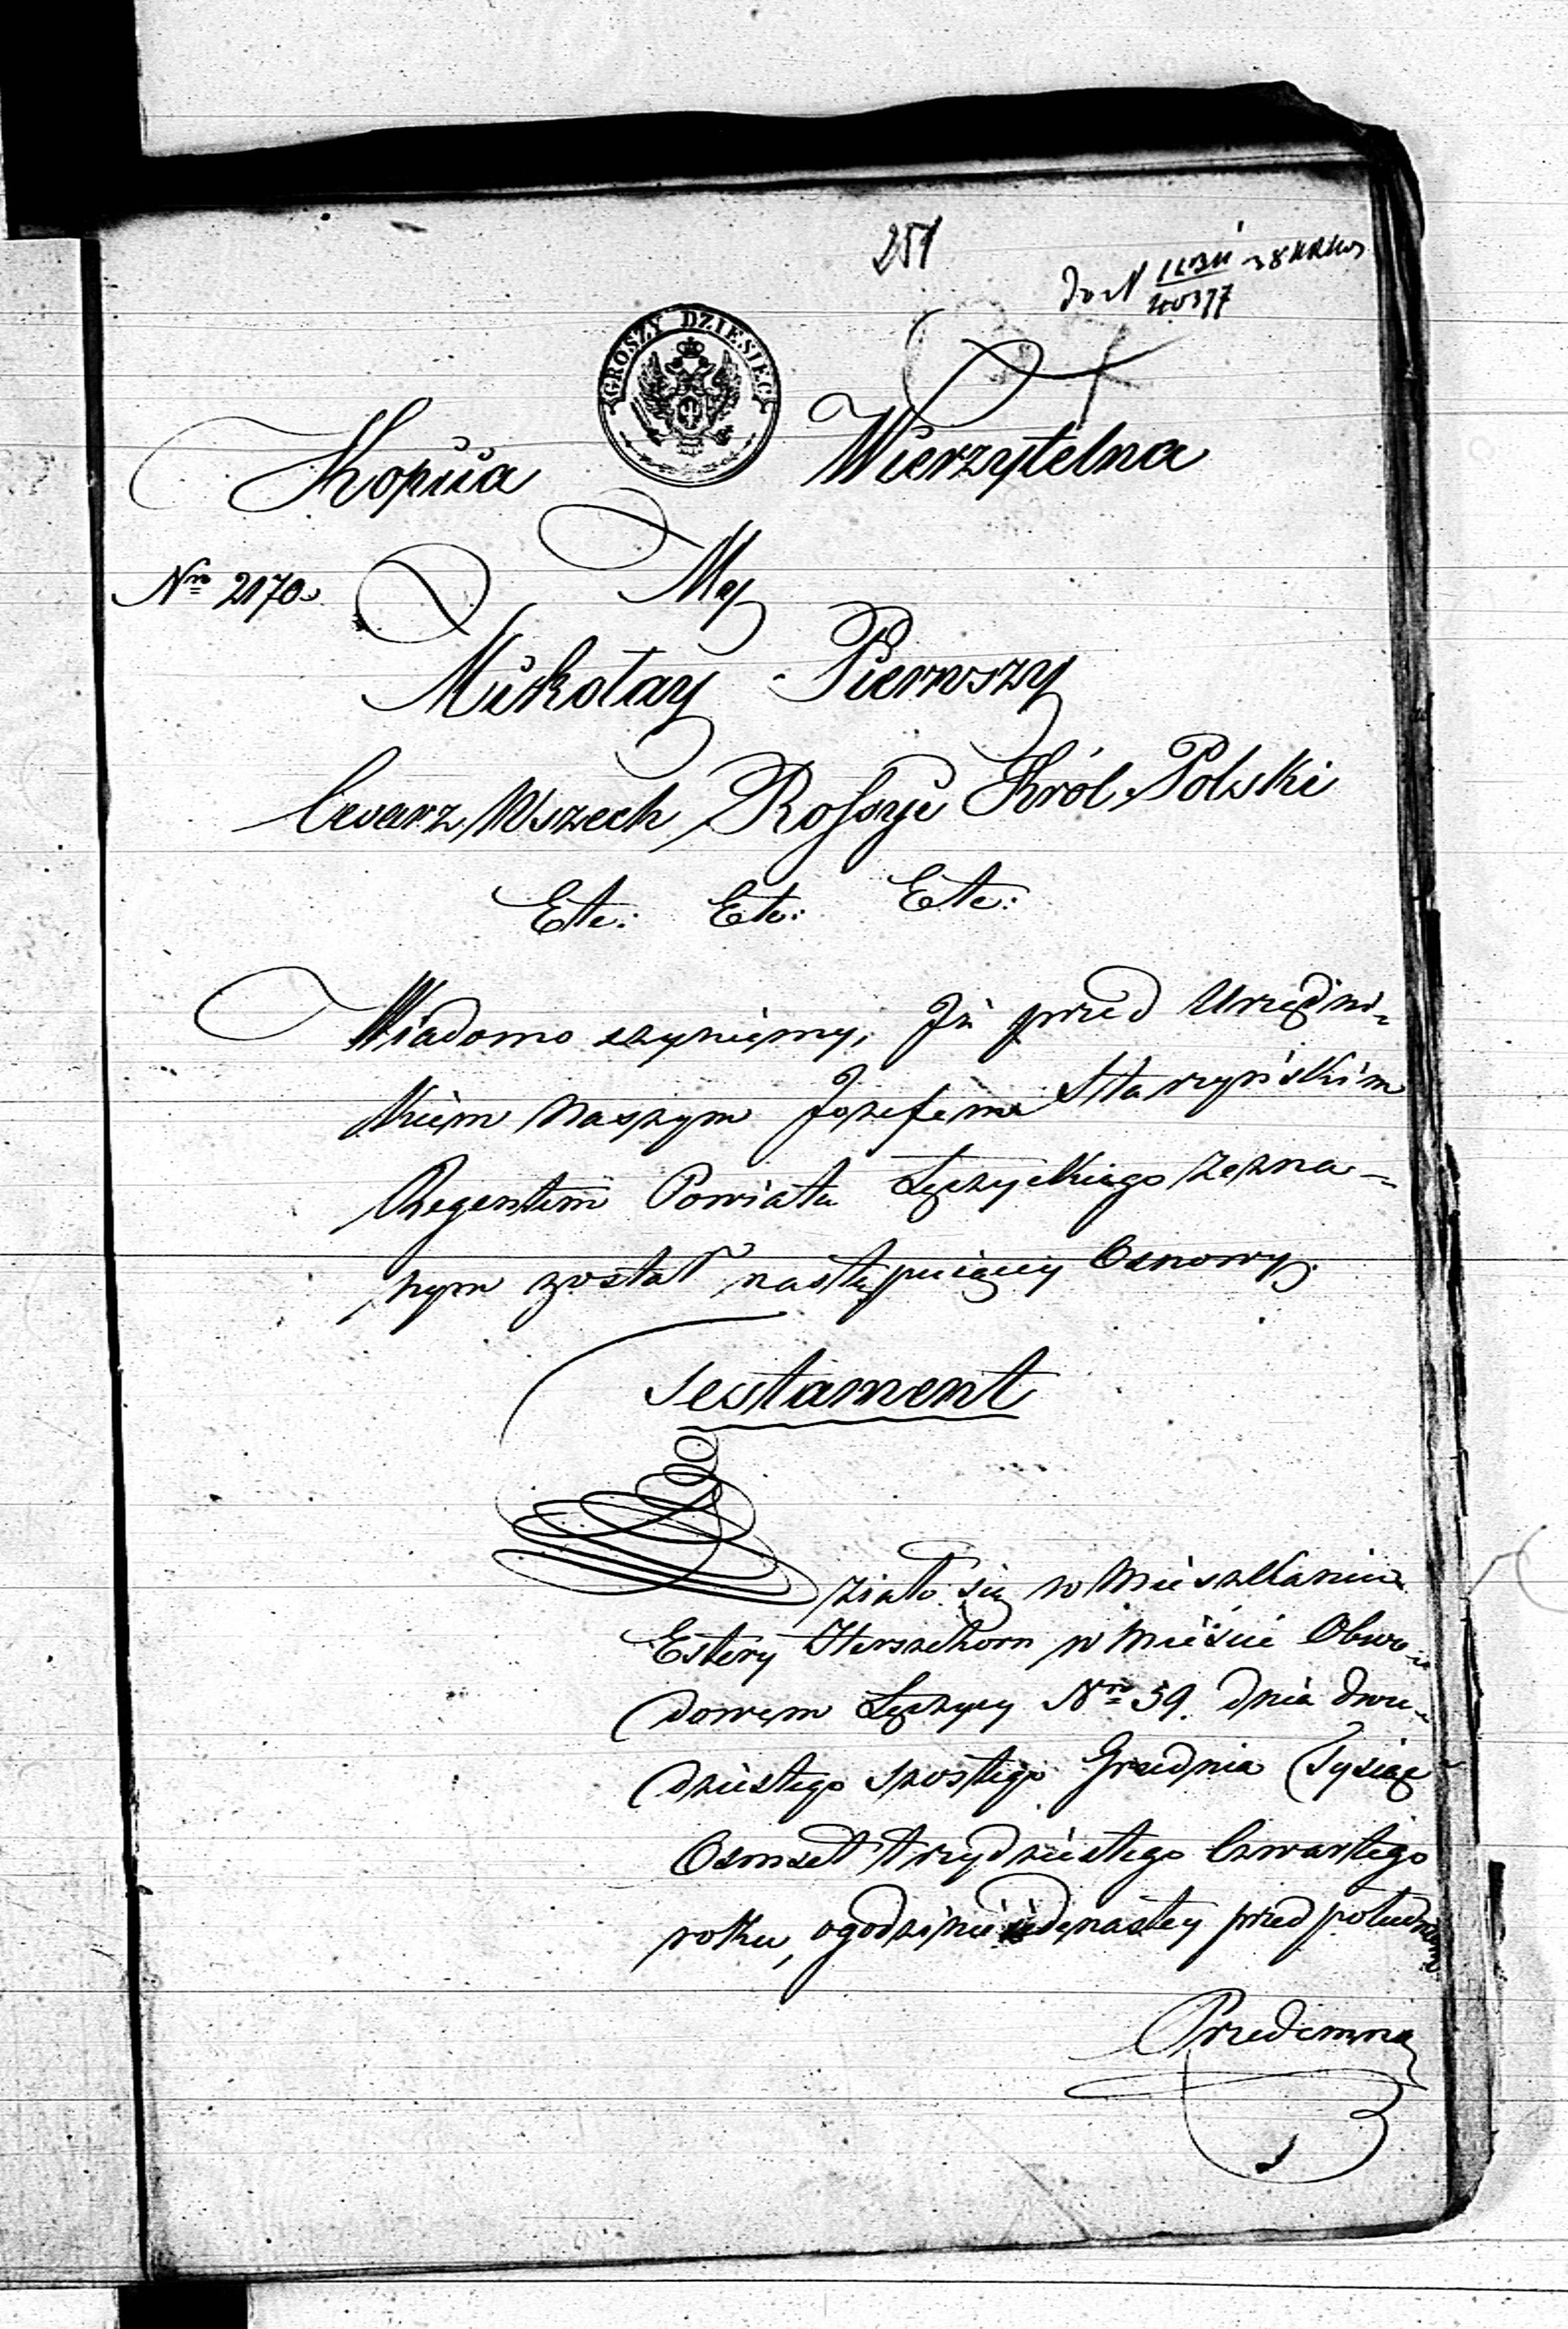 251
do N 40377
GROSZY DZIESIĘĆ
Kopiia Wierzytelna
Nro 2170.
My
Mikołay Pierwszy
Cesarz Wszech Rossyi Król Polski
Etc: Etc: Etc:
Wiadomo czyniemy, Iż przed Urzędni-
kiem Naszym Jozefem Starzyńskim
Regentem Powiatu Łęczyckiego zezna-
nym został następuiący Osnowy.
Testament
Działo się w Mieszkaniu
Estery Herszkorn w Mieście Obwo-
dowem Łęczycy Nro 59. dnia dwu-
dziestego szostego Grudnia Tysiąc
Osmset trzydziestego Czwartego
roku, o godzinie iedenastey przed południem
Przedemną